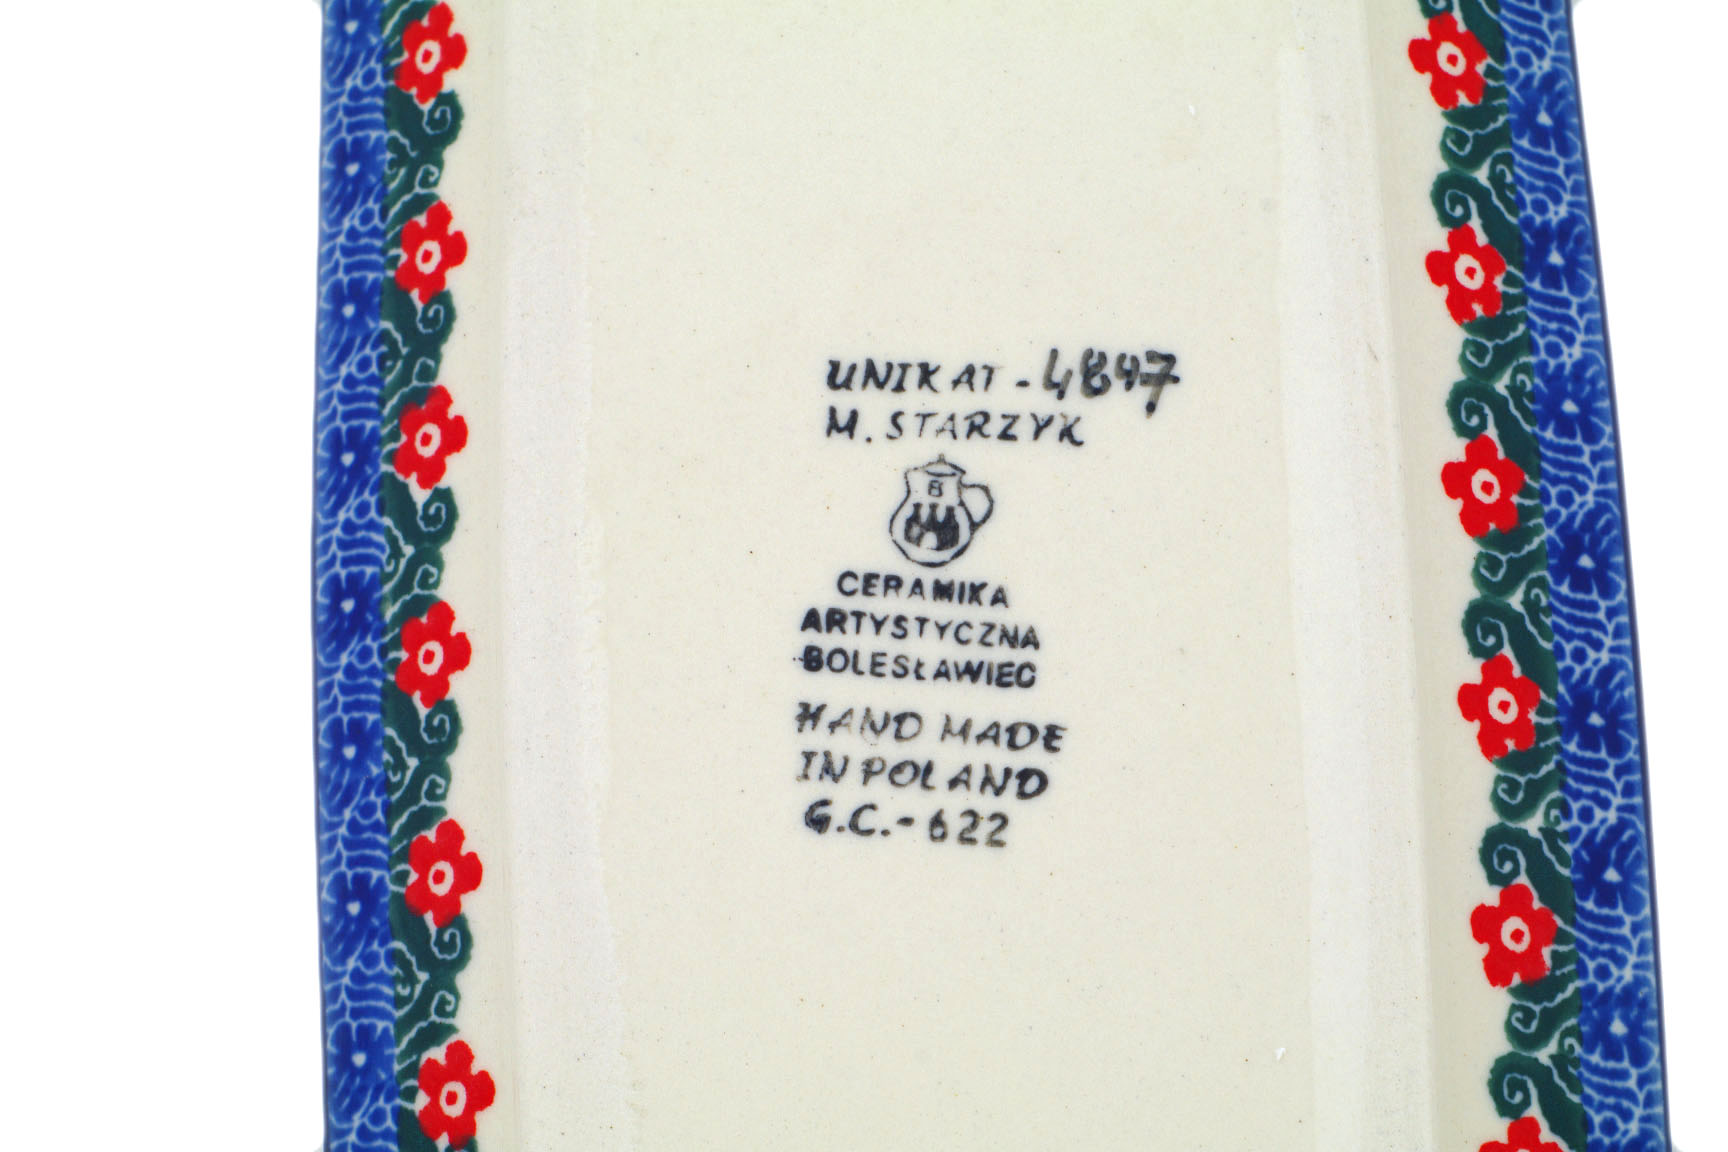 UNIKAT - 4847
M. STARZYK
B
CERAMIKA
ARTYSTYCZNA
BOLESŁAWIEC
HAND MADE
IN POLAND
G.C.-622